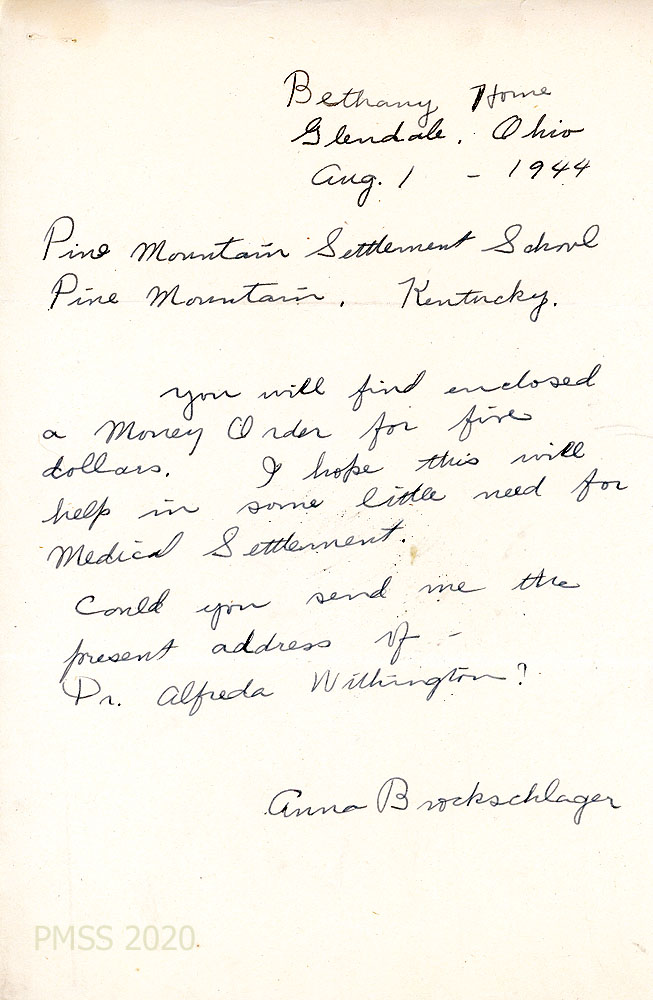 Bethany Home
Glendale, Ohio
Aug. 1 - 1944
Pine Mountain Settlement School
Pine Mountain, Kentucky.
you will find enclosed
a Money Order for five
dollars. I hope this will
help in some little need for
Medical Settlement.
Could you send me the
present address of -
Dr. Alfreda Withington?
Anna Brockschlager
PMSS 2020